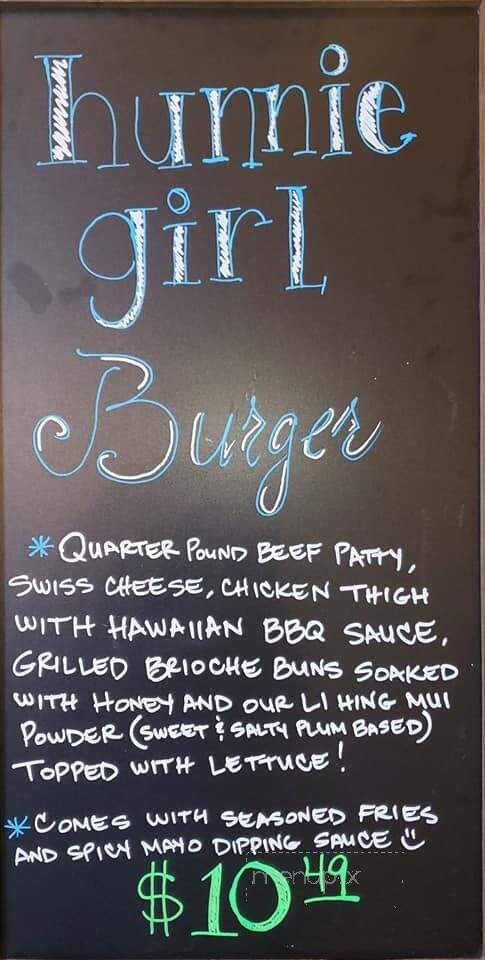 hunnie
girl
Burger
* QUARTER POUND BEEF PATTY,
SWISS CHEESE, CHICKEN THIGH
WITH HAWAIIAN BBQ SAUCE,
GRILLED BRIOCHE BUNS SOAKED
WITH HONEY AND OUR LI HING MUI
POWDER (SWEET & SALTY PLUM BASED)
TOPPED WITH LETTUCE!
* COMES WITH SEASONED FRIES
AND SPICY MAYO DIPPING SAUCE
$10.49
menupix